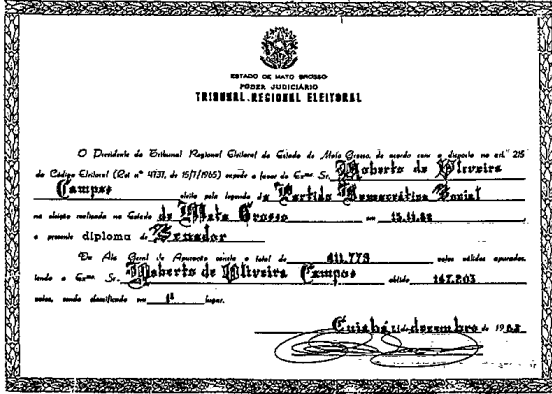 ESTADO DE MATO GROSSO
PODER JUDICIÁRIO
TRIBUNAL REGIONAL ELEITORAL
O Presidente do Tribunal Regional Eleitoral do Estado de Mato Grosso, de acordo com o disposto no art.º 215
do Código Eleitoral (Lei nº 4737, de 15/7/1965) expede a favor do Exmo. Sr. Roberto de Oliveira
Campos eleito pela legenda do Partido Democrático Social
na eleição realizada no Estado de Mato Grosso em 15.11.82,
o presente diploma de Senador
Da Ata Geral de Apuração consta o total de 411.779 votos válidos apurados,
tendo o Exmo. Sr. Roberto de Oliveira Campos obtido 147.203
votos, sendo classificado em 1º lugar.
Cuiabá, de dezembro de 1982